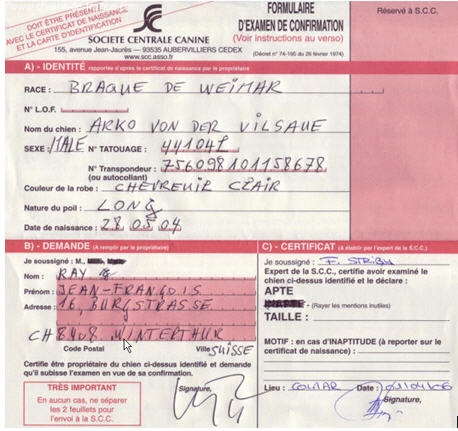 DOIT ÊTRE PRÉSENTÉ
AVEC LE CERTIFICAT DE NAISSANCE
ET LA CARTE D'IDENTITÉ
SOCIETE CENTRALE CANINE
155, avenue Jean-Jaurès — 93535 AUBERVILLIERS CEDEX
www.scc.asso.fr
FORMULAIRE
D'EXAMEN DE CONFIRMATION
(Voir instructions au verso)
(Décret n° 74-195 du 26 février 1974)
Réservé à S.C.C.
A) - IDENTITÉ rapportée d'après le certificat de naissance par le propriétaire)
RACE : BRAQUE DE WEIMAR
N° L.O.F.
Nom du chien : ARKO VON DER VILSAUE
SEXE : MALE N° TATOUAGE : 441041
N° Transpondeur : 756098101158678
(ou autocollant)
Couleur de la robe : CHEVREUIR CLAIR
Nature du poil : LONG
Date de naissance : 28.05.04
B) - DEMANDE (A remplir par le propriétaire)
Je soussigné : M.,
Nom : RAY
Prénom : JEAN-FRANÇOIS
Adresse : 16, BURGSTRASSE
CH 8408 WINTERTHUR
Code Postal Ville SUISSE
Certifie être propriétaire du chien ci-dessus identifié et demande
qu'il subisse l'examen en vue de sa confirmation.
TRÈS IMPORTANT
En aucun cas, ne séparer
les 2 feuillets pour
l'envoi à la S.C.C.
Signature,
C) - CERTIFICAT (A établir par l'expert de la S.C.C.)
Je soussigné : F.
Expert de la S.C.C., certifie avoir examiné le
chien ci-dessus identifié et le déclare :
APTE
(Rayer les mentions inutiles)
TAILLE :
MOTIF : en cas d'INAPTITUDE (à reporter sur le
certificat de naissance) :
Lieu : COLMAR Date :
Signature,